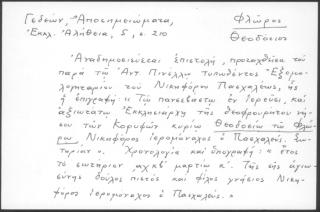 Γεδεών, "Αποσημειώματα,
Φλῶρος
Ἐκκλ. Ἀλήθεια, 5, σ. 210
Θεοδόσιος
Ἀναδημοσιεύεται ἐπιστολὴ, προταχθεῖσα τοῦ
παρὰ τῷ Ἀντ. Πινέλλῳ τυπωθέντος "Ἐξομο-
λογηταρίου τοῦ Νικηφόρου Πασχαλέως, ἧς
ἡ ἐπιγραφή: «Τῷ πανσεβάστῳ ἐν Ἱερεῦσι, καὶ
ἀξιωτάτῳ Ἐκκλησιάρχῃ τῆς θεοφρουρήτου νή-
σου τῶν Κορυφῶν κυρίῳ Θεοδοσίῳ τῷ Φλώ-
ρῳ Νικηφόρος Ἱερομόναχος ὁ Πασχαλεύς, Σω-
τηρίαν». Χρονολογία καὶ ὑπογραφή: «ἔτος
τὸ σωτήριον αχκβʹ μαρτίῳ κʹ. Τῆς σῆς ἁγιω-
σύνης δοῦλος πιστὸς καὶ φίλος γνήσιος Νικη-
φόρος Ἱερομόναχος ὁ Πασχαλεύς.»